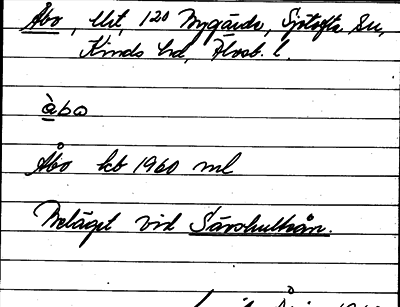 Åbo, lht, 120 Nygärde, Sjötofta sn,
Kinds hd, Älvsb. l.
àbo
Åbo kb 1960 ml
Beläget vid Särshultsån.